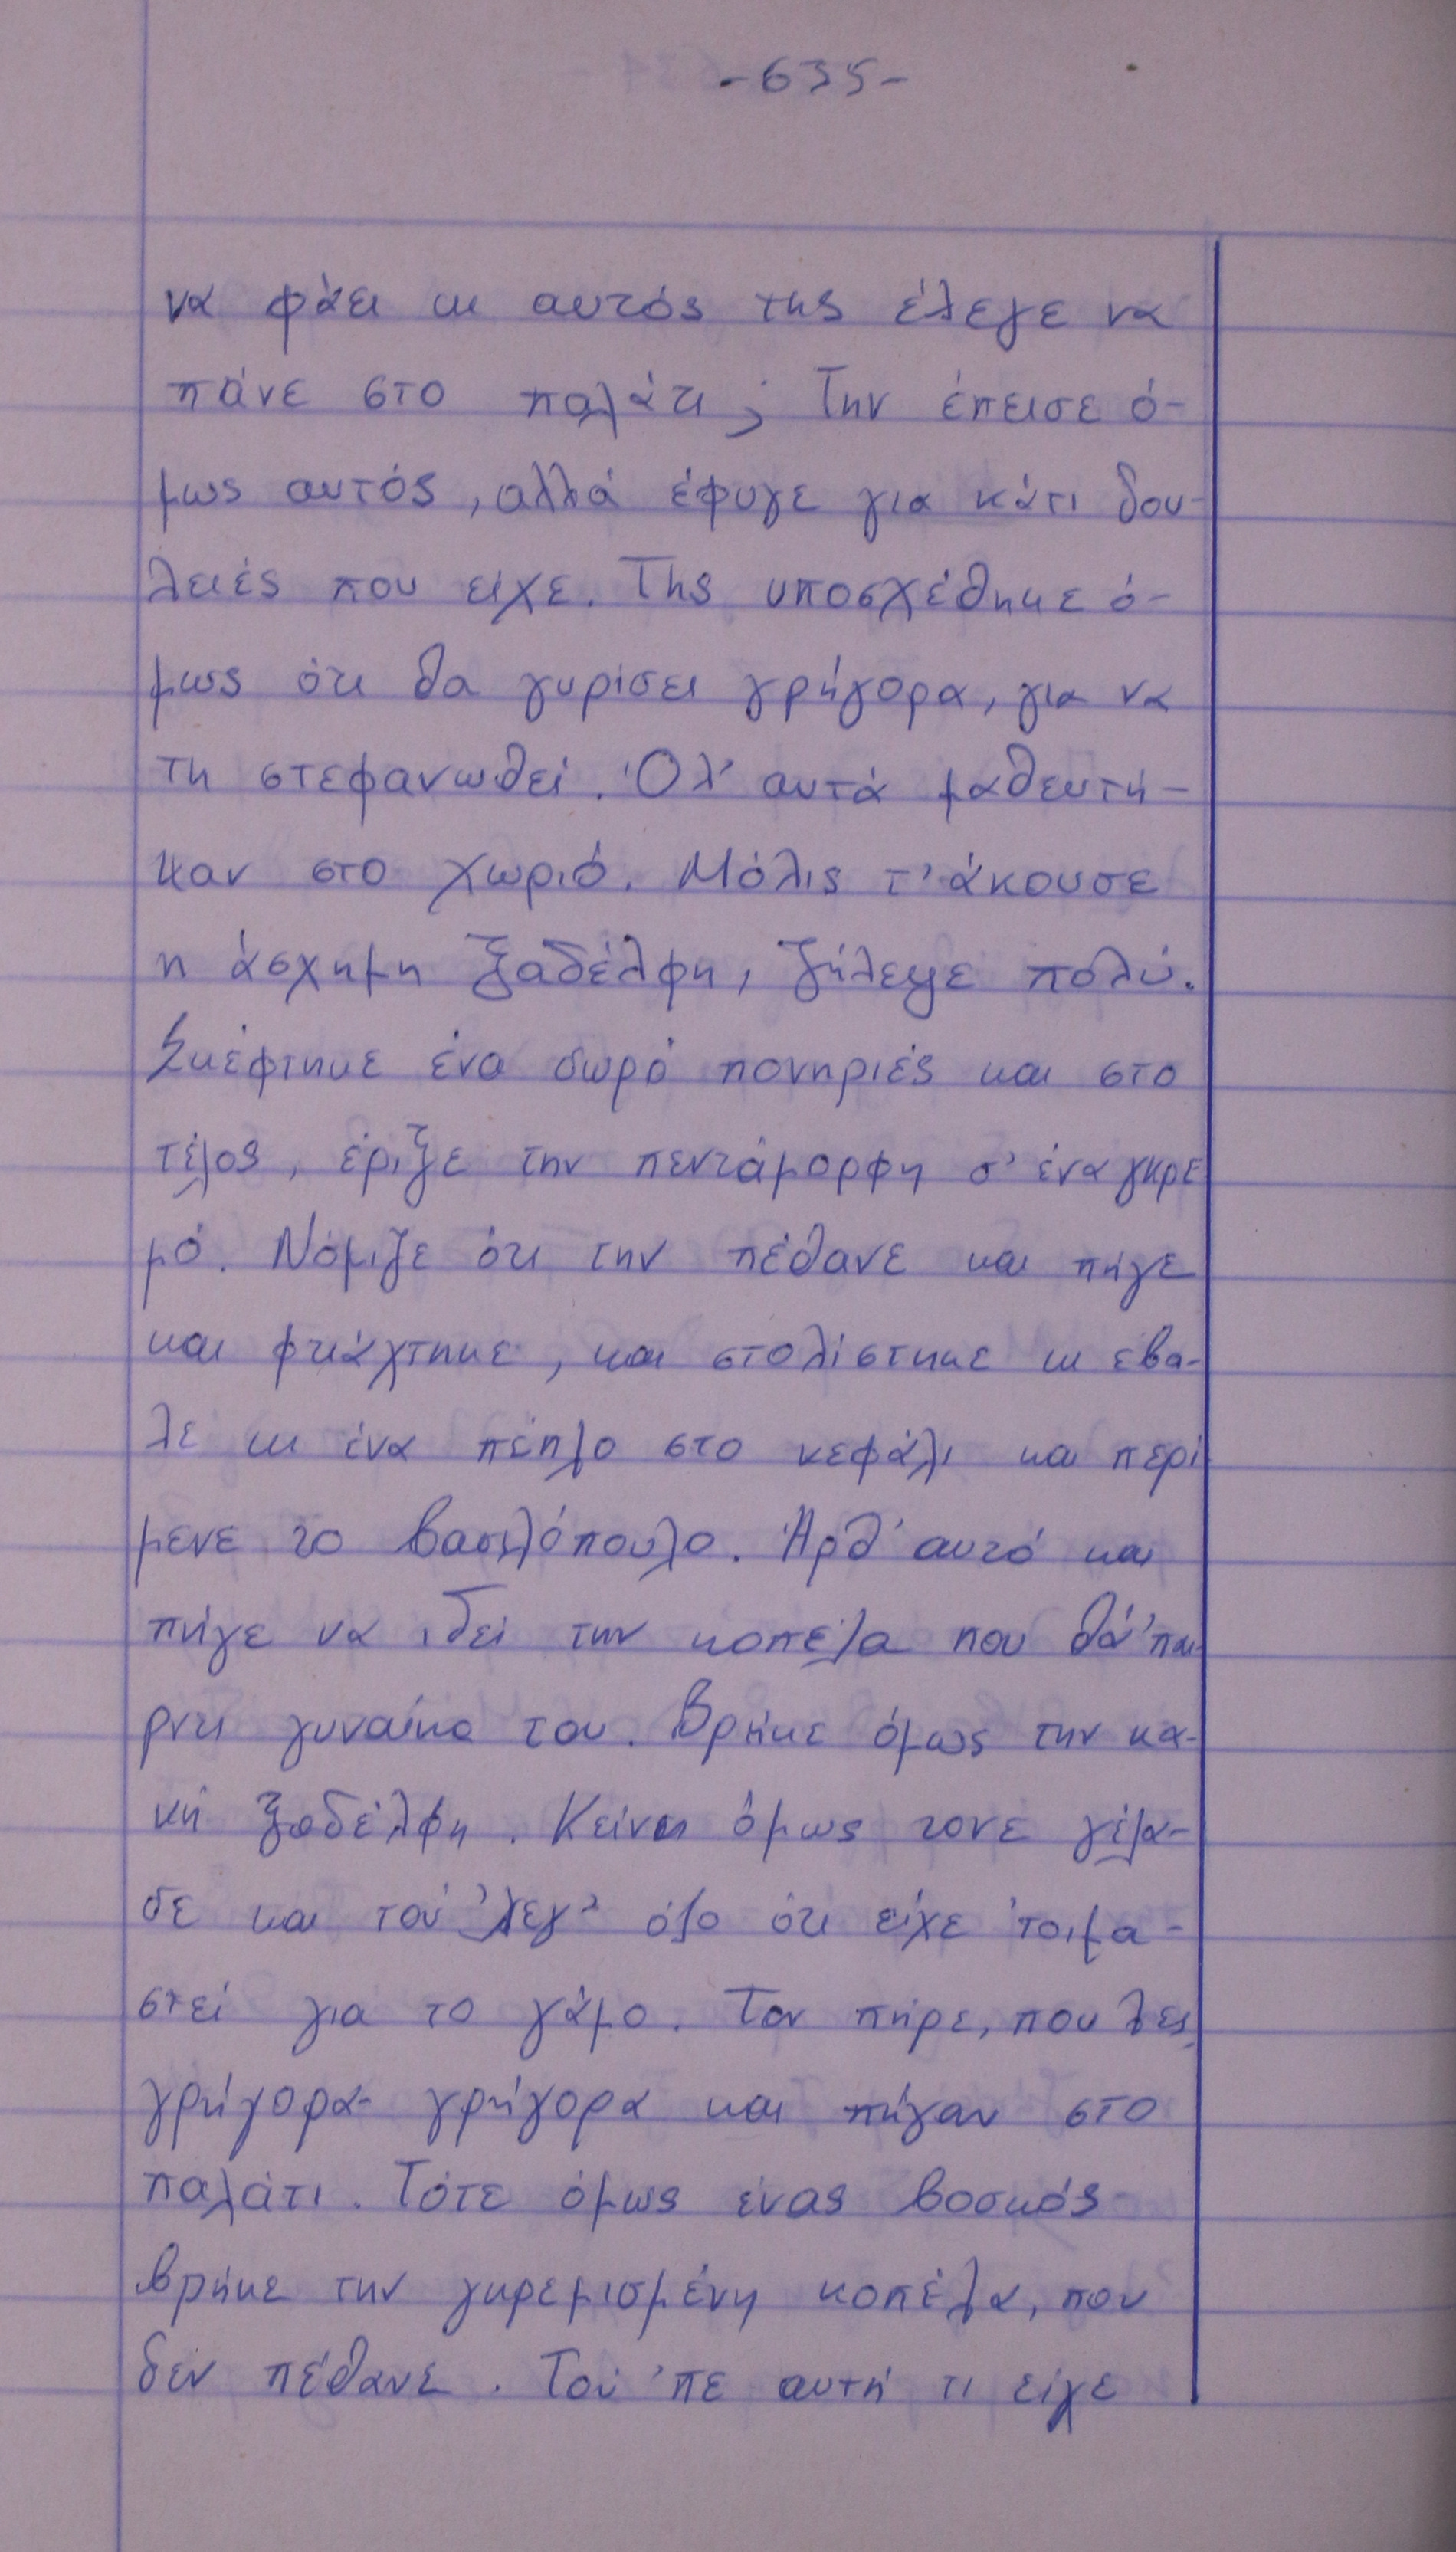 -635-
να φάει κι αυτός της έλεγε να
πάνε στο παλάτι; Την έπεισε ό-
μως αυτός, αλλά έφυγε για κάτι δου-
λειές που είχε. Της υποσχέθηκε ό-
μως ότι θα γυρίσει γρήγορα, για να
τη στεφανωθεί. Όλ' αυτά μαθευτή-
καν στο χωριό. Μόλις τ' άκουσε
η άσχημη ξαδέλφη, ζήλεψε πολύ.
Σκέφτηκε ένα σωρό πονηριές και στο
τέλος, έριξε την πεντάμορφη σ' ένα γκρε
μό. Νόμιζε ότι την πέθανε και πήγε
και φτιάχτηκε, και στολίστηκε κι έβα-
λε κι ένα πέπλο στο κεφάλι και περί
μενε το βασιλόπουλο. Ήρθ' αυτό και
πήγε να ιδεί την κοπέλα που θά 'παι
ρνε γυναίκα του. Βρήκε όμως την κα-
κή ξαδέλφη. Κείνη όμως τονε γέλα-
σε και τού 'λεγ' όλο ότι είχε 'τοιμα-
στεί για το γάμο. Τον πήρε, που λες
γρήγορα-γρήγορα και πήγαν στο
παλάτι. Τότε όμως ένας βοσκός
βρήκε την γκρεμισμένη κοπέλα, που
δεν πέθανε. Τού 'πε αυτή τι είχε